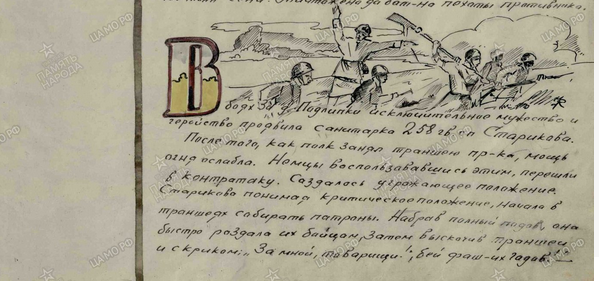 Уничтожено до бат-на пехоты противника.
В
бою за д Подлипки исключительное мужество и
геройство проявила санитарка 258 гв. сп Старикова.
После того, как полк занял траншею пр-ка, мощь
огня ослабла. Немцы воспользовавшись этим, перешли
в контратаку. Создалось угрожающее положение.
Старикова понимая критическое положение, начала в
траншеях собирать патроны. Набрав полный подол, она
быстро раздала их бойцам, затем выскочив траншеи
и с криком:„За мной, товарищи!", „Бей фаш-их гадов"
ЦАМО.РФ
ПАМЯТЬ НАРОДА